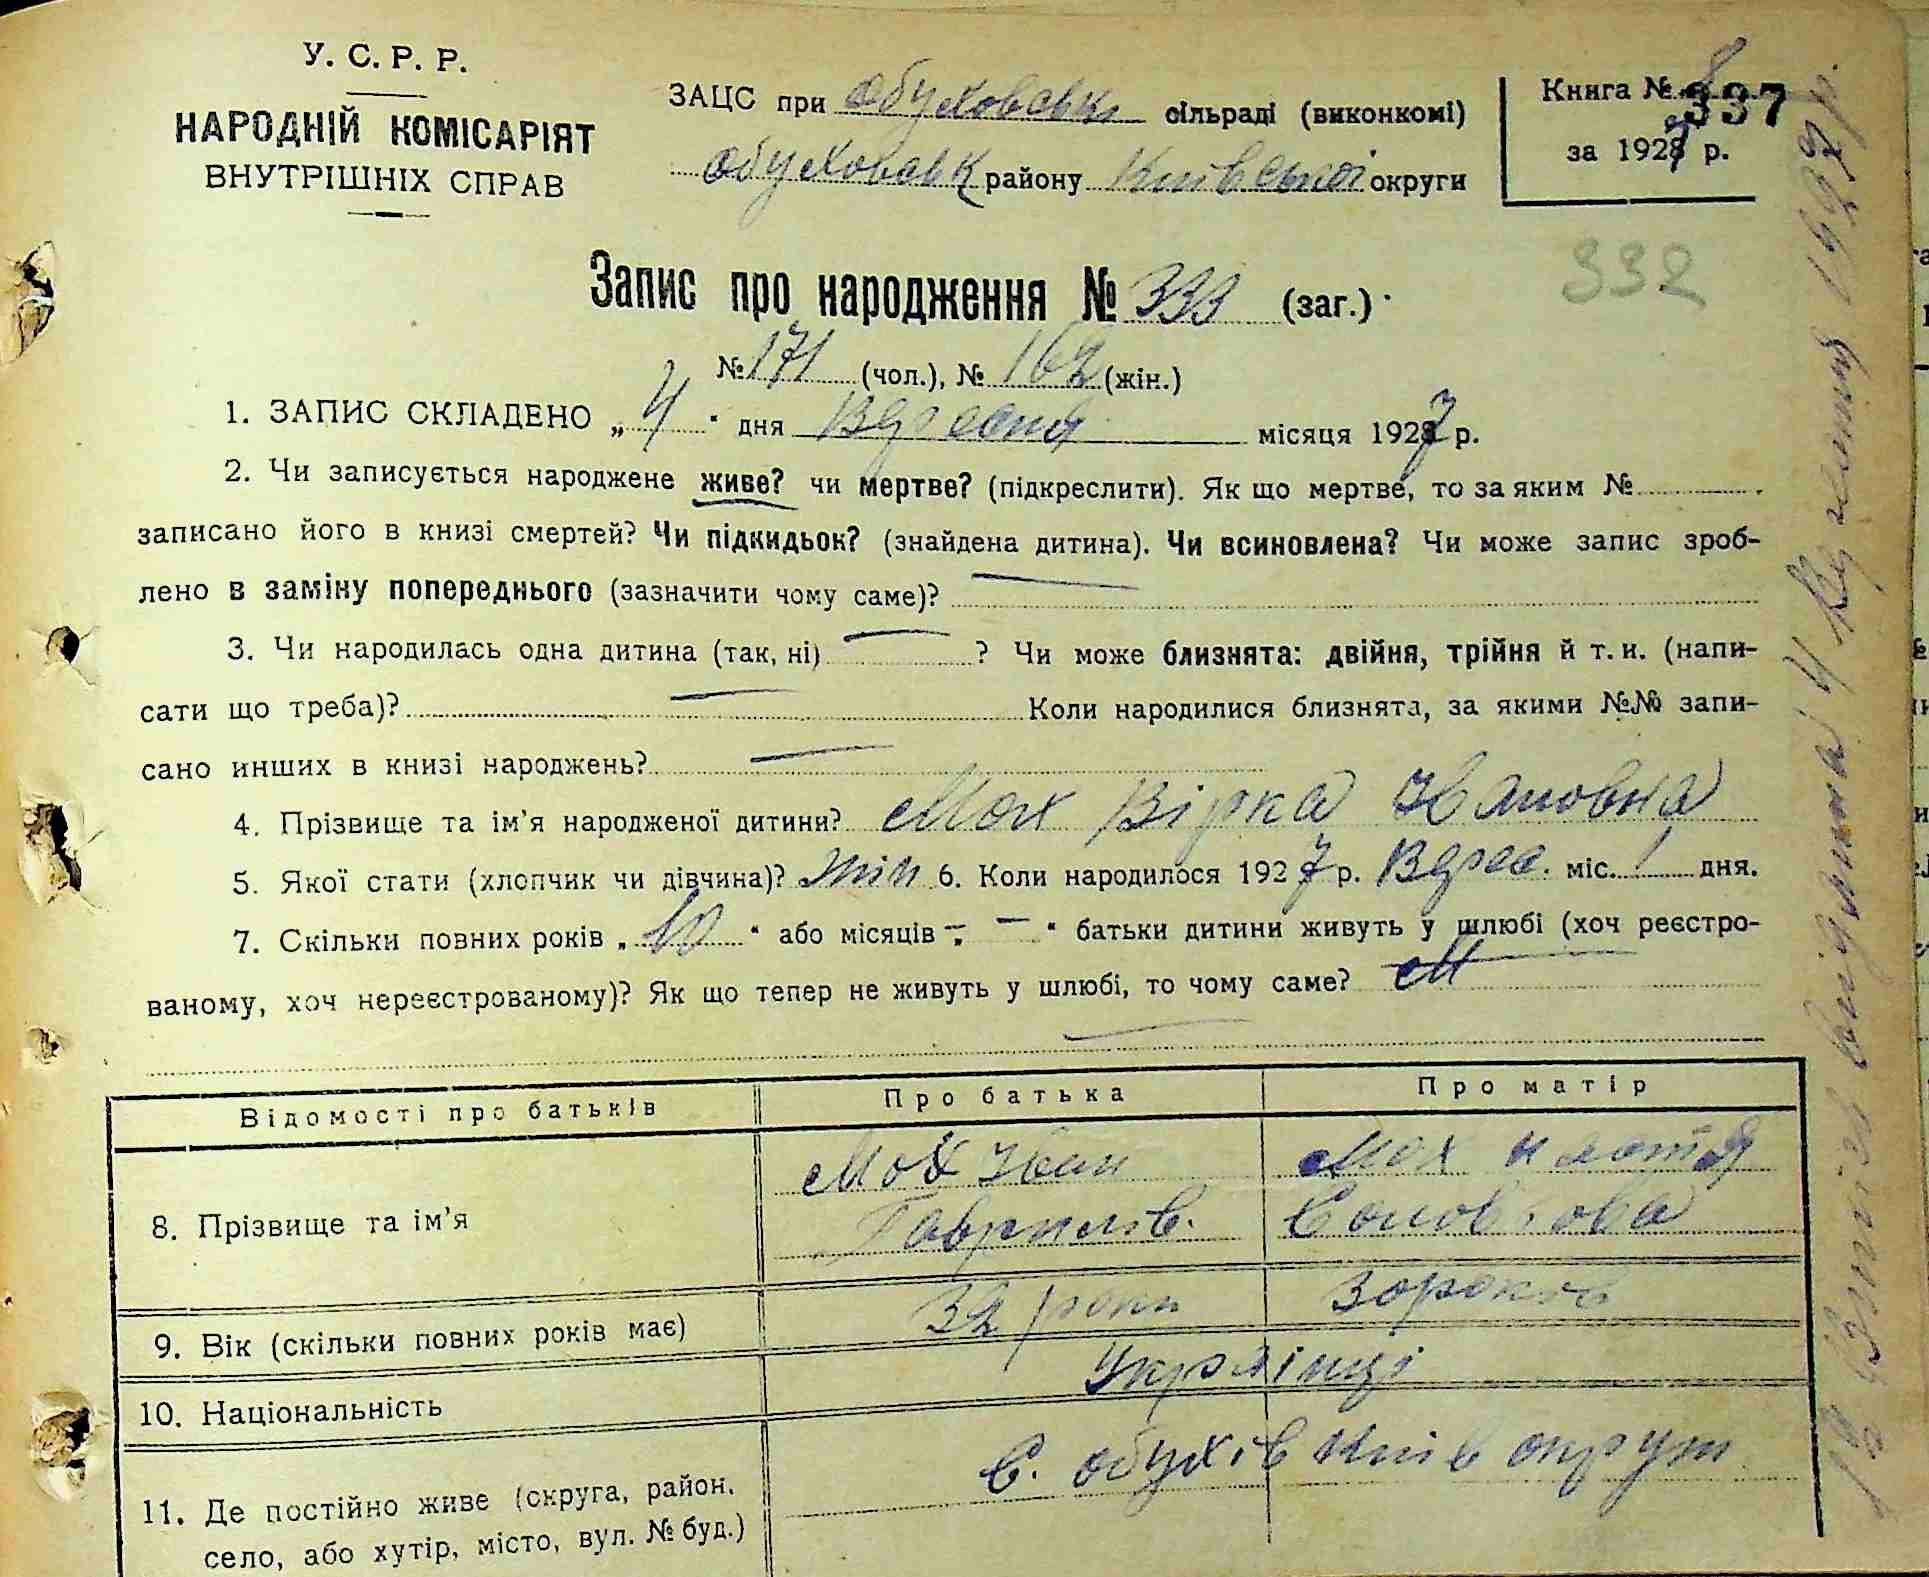 У. С. Р. Р.
НАРОДНІЙ КОМІСАРІЯТ
ВНУТРІШНІХ СПРАВ
ЗАЦС при Обуховськ сільраді (виконкомі)
Обуховськ району Київської округи
Книга № 8
337
за 1927 р.
332
Запис про народження № 333 (заг.)
№ 171 (чол.), № 162 (жін.)
1. ЗАПИС СКЛАДЕНО „ 4 " дня Вересня місяця 1927 р.
2. Чи записується народжене живе? чи мертве? (підкреслити). Як що мертве, то за яким №
записано його в книзі смертей? Чи підкидьок? (знайдена дитина). Чи всиновлена? Чи може запис зроб-
лено в заміну попереднього (зазначити чому саме)?
3. Чи народилась одна дитина (так, ні) ? Чи може близнята: двійня, трійня й т. и. (напи-
сати що треба)? Коли народилися близнята, за якими №№ запи-
сано инших в книзі народжень?
4. Прізвище та ім'я народженої дитини? Мох Вірка Івановна
5. Якої стати (хлопчик чи дівчина)? жін 6. Коли народилося 1927 р. Верес. міс. 1 дня.
7. Скільки повних років „ 10 " або місяців „ — " батьки дитини живуть у шлюбі (хоч реєстро-
ваному, хоч нереєстрованому)? Як що тепер не живуть у шлюбі, то чому саме?
Відомості про батьків Про батька Про матір
8. Прізвище та ім'я
Мох Іван Мох
Гаврилів.
9. Вік (скільки повних років має) 32 роки
10. Національність Українці
11. Де постійно живе (округа, район, село, або хутір, місто, вул. № буд.)
с. Обухів Київ округи